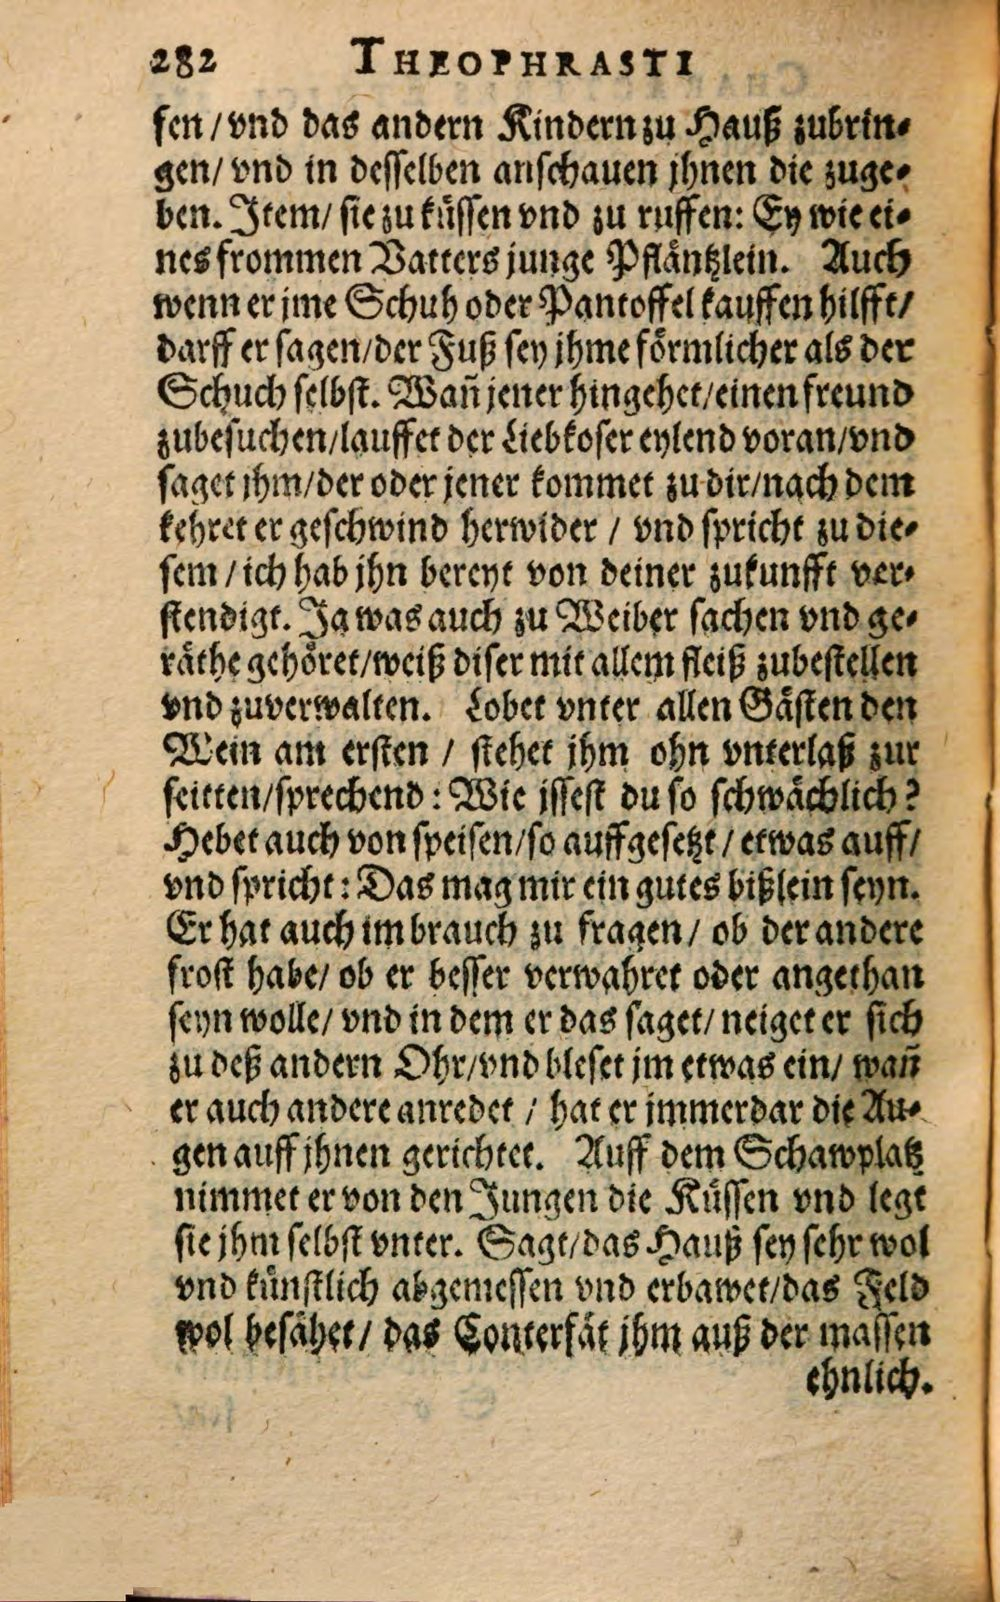 282 THEOPHRASTI
sen / vnd das andern Kindern zu Hauß zubrin-
gen / vnd in desselben anschauen jhnen die zuge-
ben. Item / sie zu küssen vnd zu ruffen: Ey wie ei-
nes frommen Vatters junge Pfläntzlein. Auch
wenn er jme Schuh oder Pantoffel kauffen hilfft /
darff er sagen / der Fuß sey jhme förmlicher als der
Schuch selbst. Wañ jener hingehet / einen freund
zubesuchen / lauffet der Liebkoser eylend voran / vnd
saget jhm / der oder jener kommet zu dir / nach dem
kehret er geschwind herwider / vnd spricht zu die-
sem / ich hab jhn bereyt von deiner zukunfft ver-
stendigt. Ja was auch zu Weiber sachen vnd ge-
räthe gehöret / weiß diser mit allem fleiß zubestellen
vnd zuverwalten. Lobet vnter allen Gästen den
Wein am ersten / stehet jhm ohn vnterlaß zur
seitten / sprechend: Wie issest du so schwächlich?
Hebet auch von speisen / so auffgesetzt / etwas auff /
vnd spricht: Das mag mir ein gutes bißlein seyn.
Er hat auch im brauch zu fragen / ob der andere
frost habe / ob er besser verwahret oder angethan
seyn wolle / vnd in dem er das saget / neiget er sich
zu deß andern Ohr / vnd bleset jm etwas ein / wañ
er auch andere anredet / hat er jmmerdar die Au-
gen auff jhnen gerichtet. Auff dem Schawplatz
nimmet er von den Jungen die Küssen vnd legt
sie jhm selbst vnter. Sagt / das Hauß sey sehr wol
vnd künstlich abgemessen vnd erbawet / das Feld
wol besähet / das Conterfät jhm auß der massen
ehnlich.